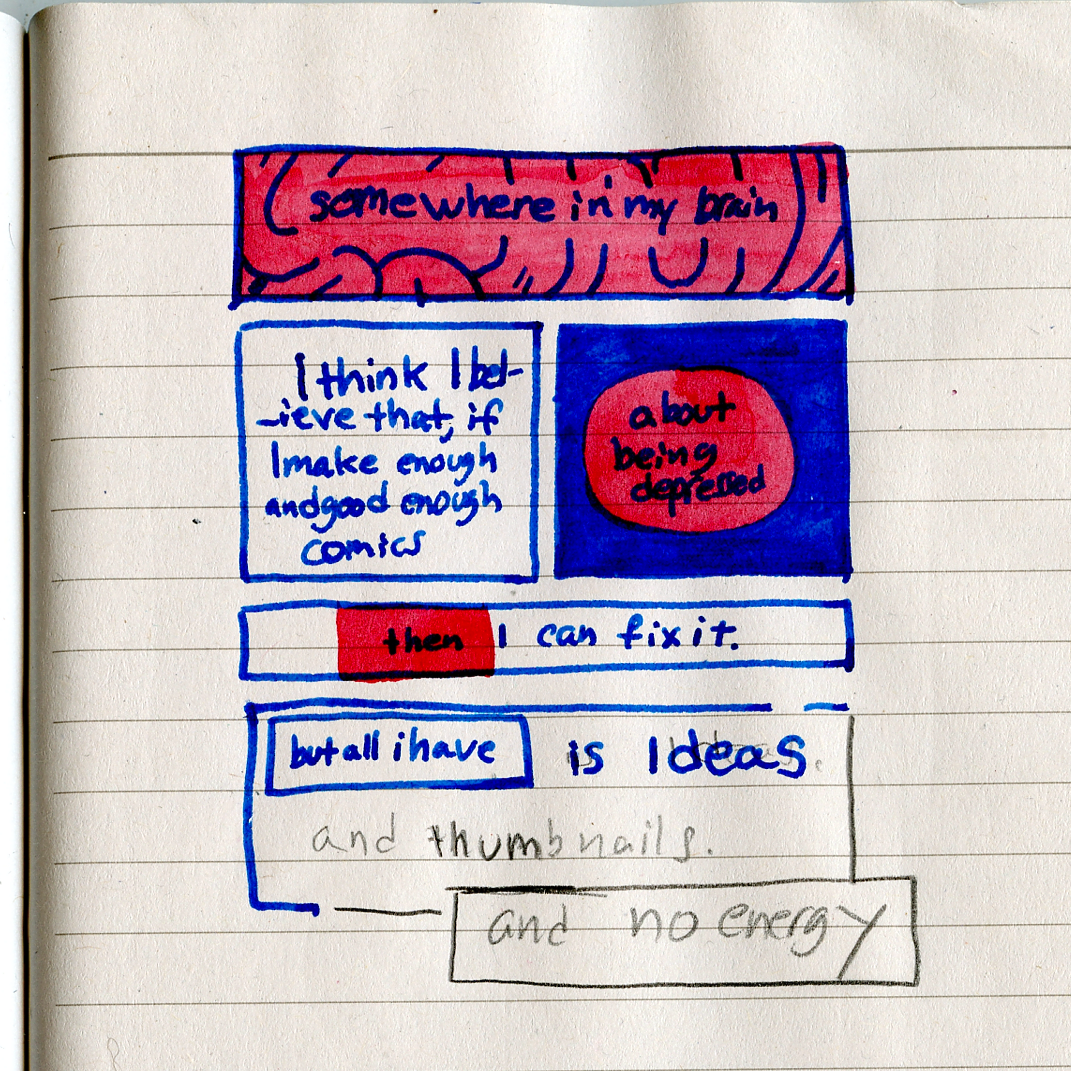 somewhere in my brain
I think I bel-
-ieve that, if
I make enough
and good enough
comics
about
being
depressed
then I can fix it.
but all i have is Ideas.
and thumbnails.
and no energy